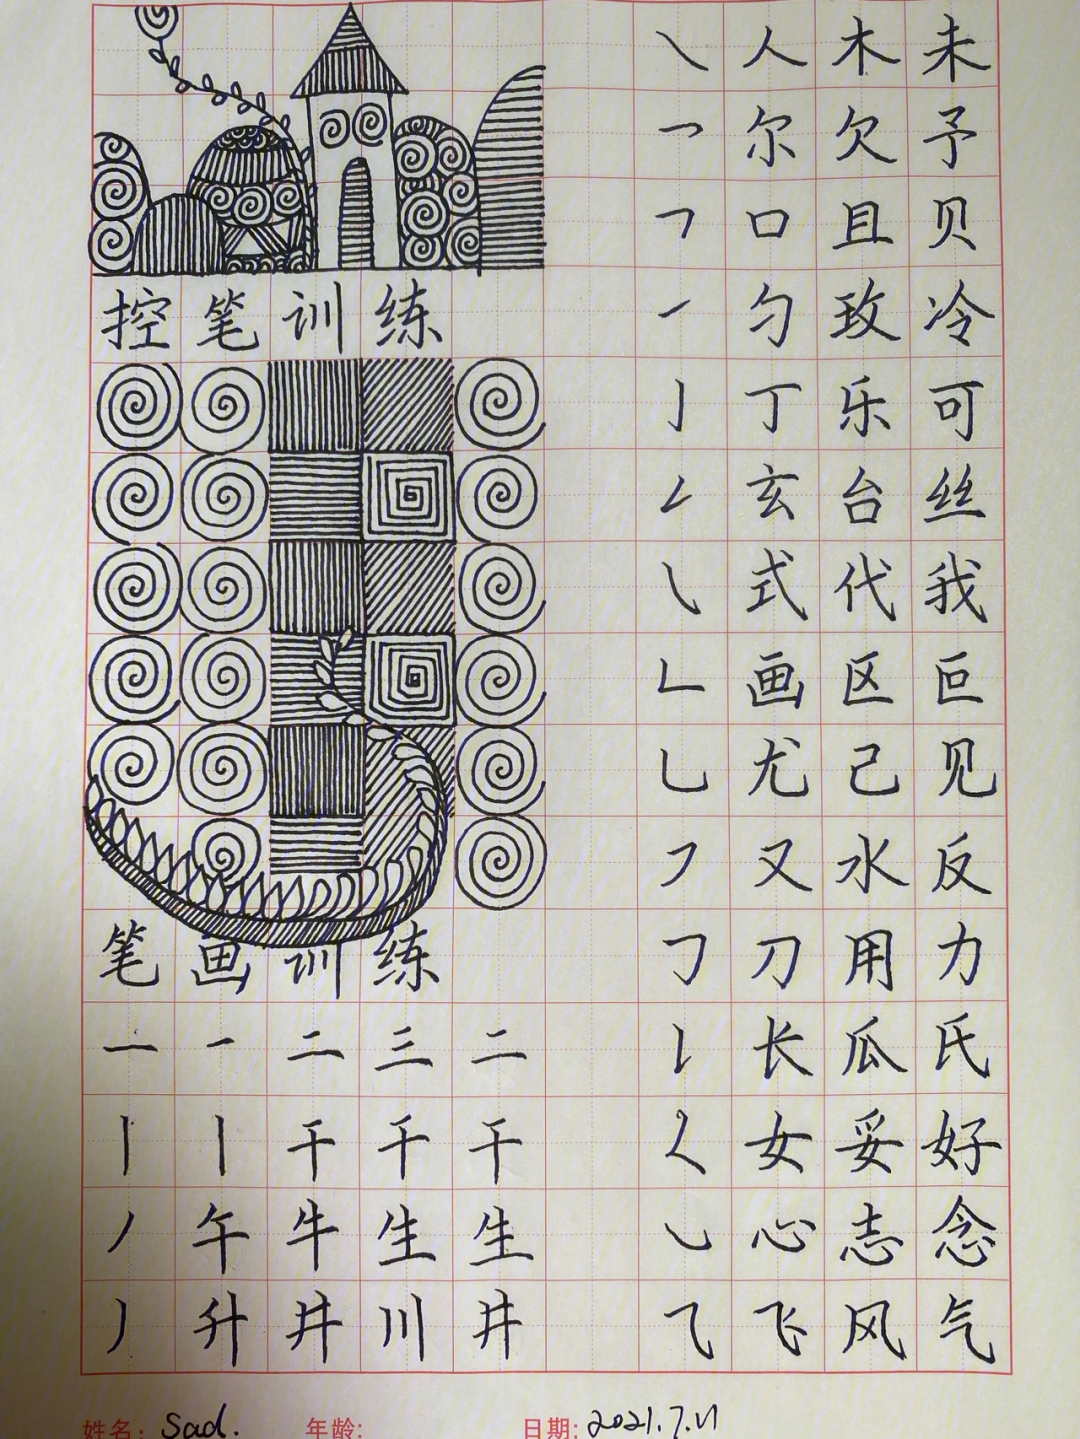 ㇏ 人 木 未
㇇ 尔 欠 予
㇕ 口 且 贝
㇀ 勺 玫 冷
控 笔 训 练
亅 丁 乐 可
玄 台 丝
㇂ 式 代 我
𠃊 画 区 叵
乚 尤 己 见
㇇ 又 水 反
笔 画 训 练
𠃌 刀 用 力
一 一 二 三 二
𠄌 长 瓜 氏
丨 丨 干 千 干
𡿨 女 妥 好
丿 午 牛 生 生
㇃ 心 志 念
丿 升 井 川 井
⺄ 飞 风 气
姓名: Sad. 年龄: 日期: 2021.7.11